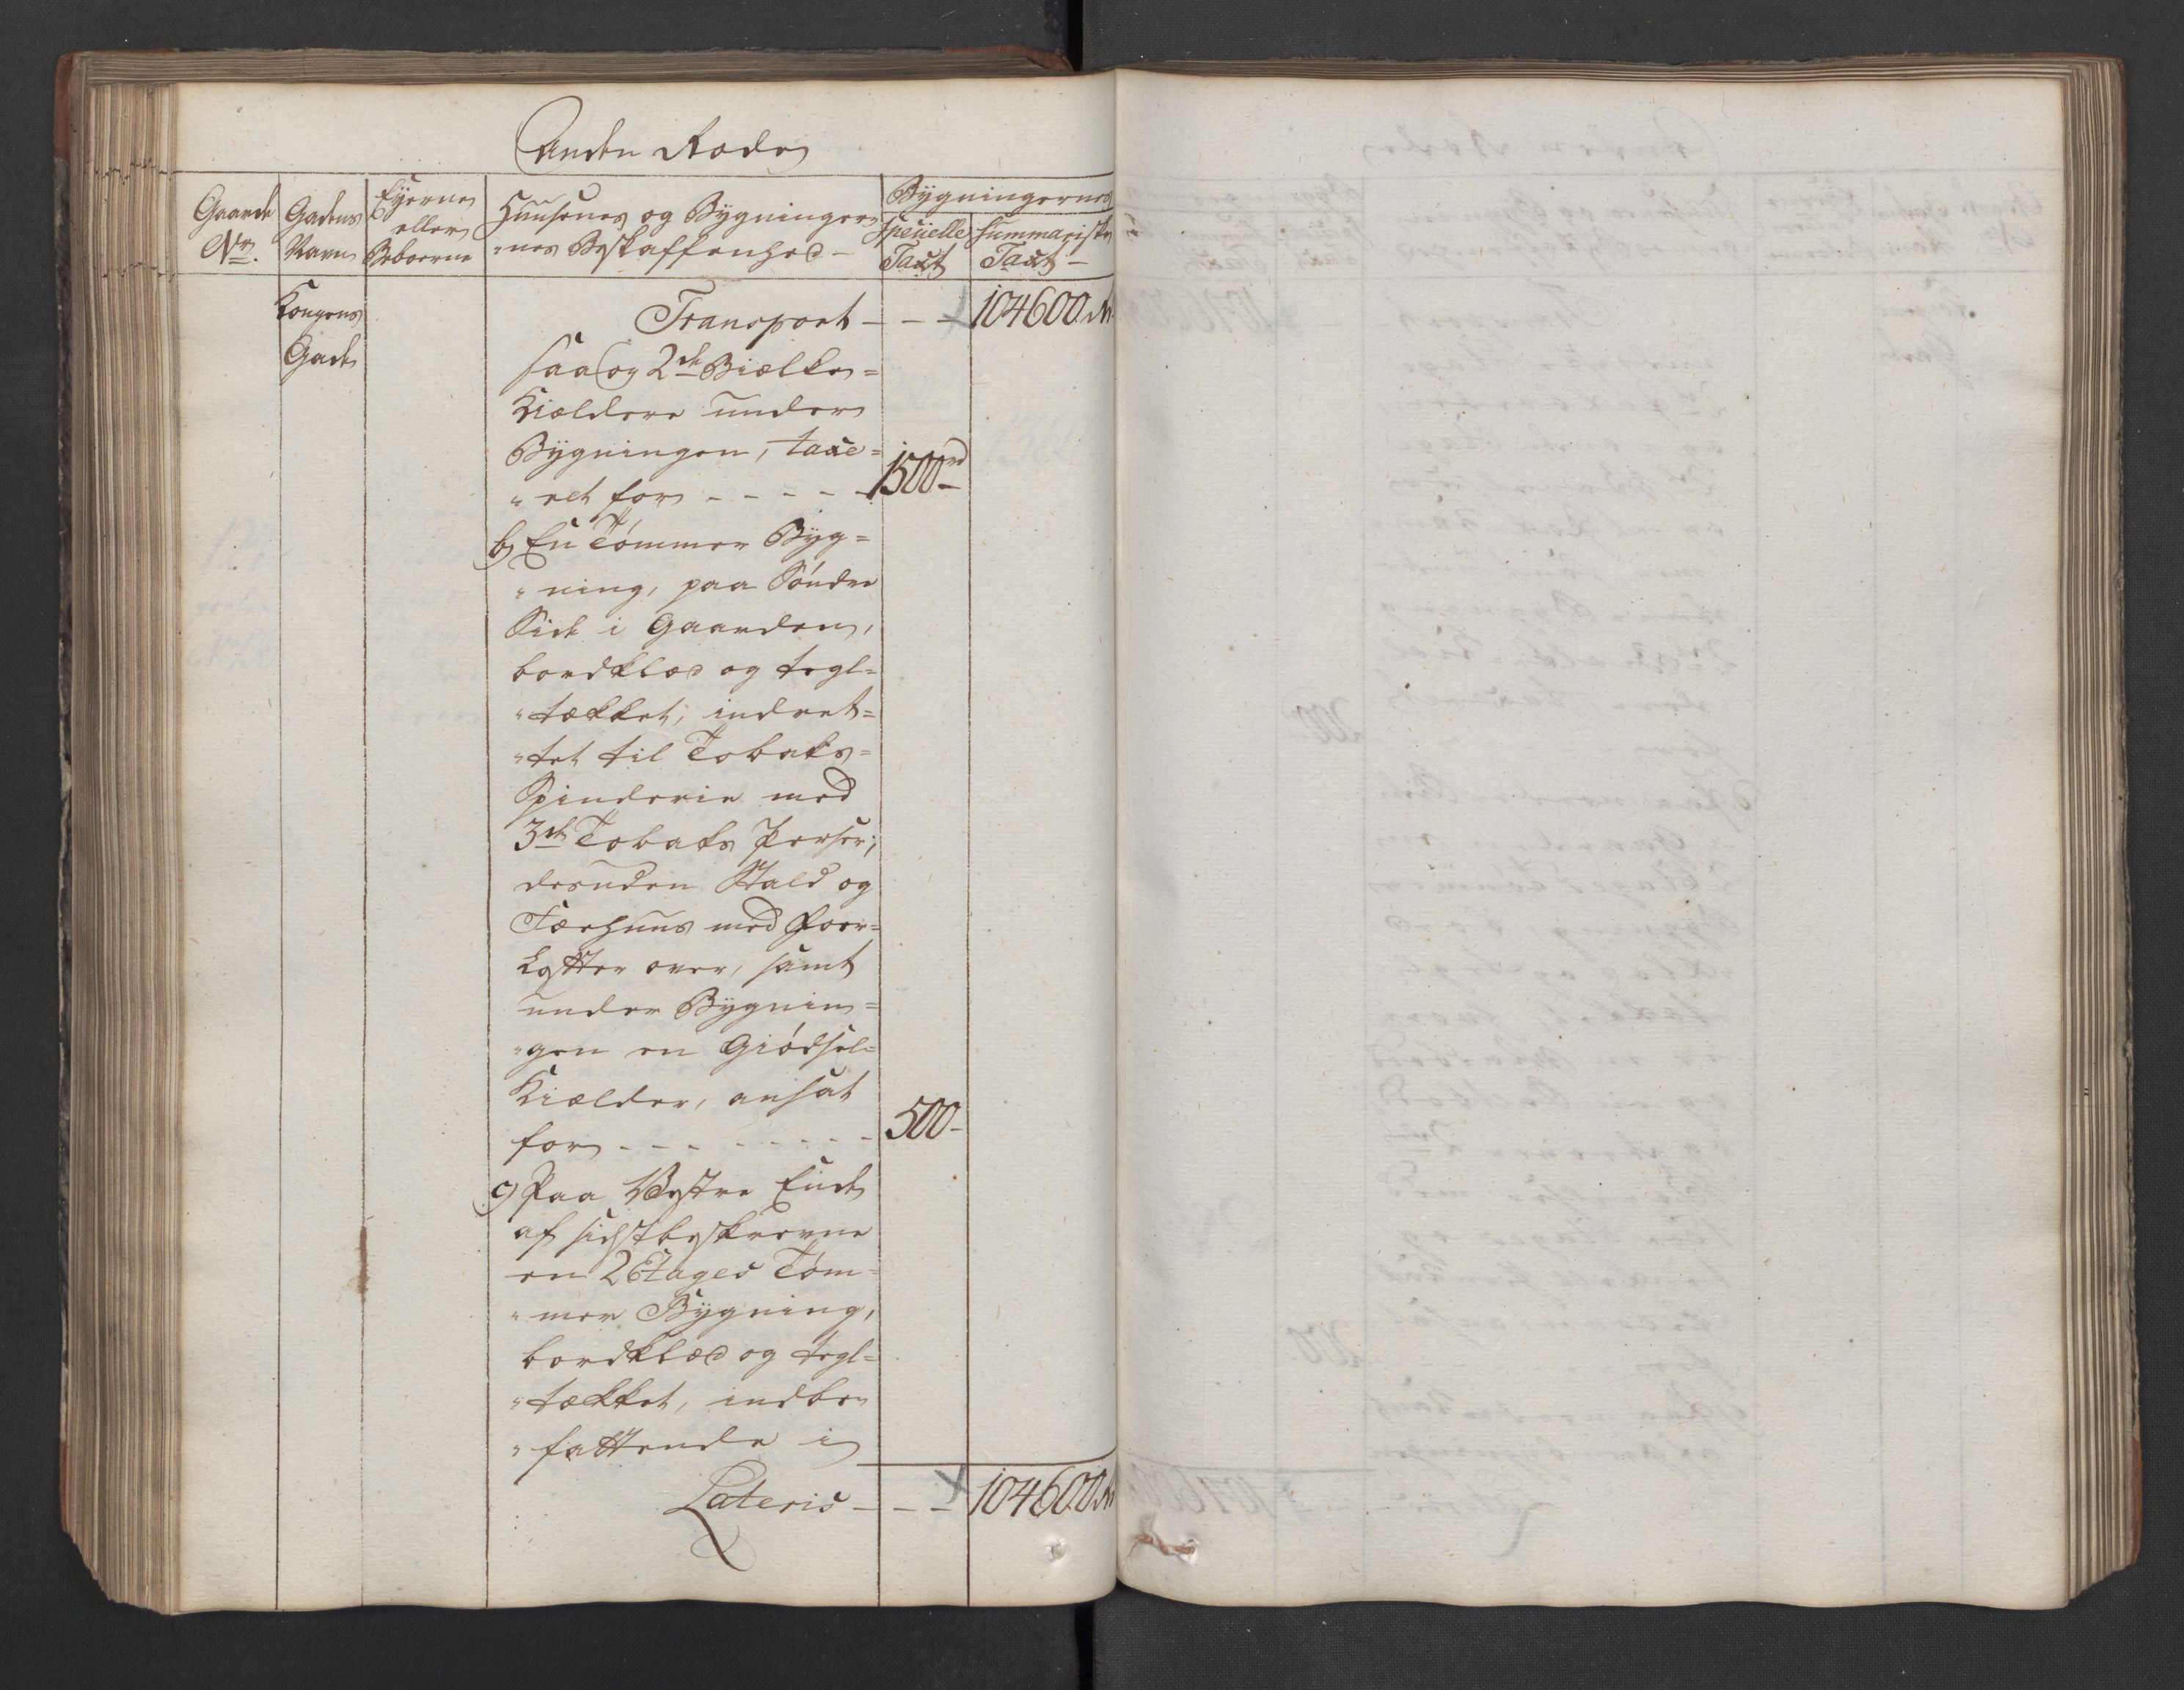 Anden Rode
Gaardens No.
Gadens Navn
Eyerne eller Beboerne
Huusenes og Bygninger-
"nes Beskaffenhed -
Bygningernes
Specielle Taxt
Summariske Taxt -
Kongens
Gade
Transport - - - 104600 rd
saa og 2de Bielke=
Kieldere under
Bygningen, taxe=
"ret for - - - - - 1500 rd
b) En Tømmer Byg=
"ning, paa Søndre
Side i Gaarden,
bordklæd og tegl=
"tækket, indret=
"tet til Tobaks=
Spinderie med
3de Tobaks Perser;
desuden Stald og
Fæehuus med Foer=
Lofter over, samt
under Bygnin=
"gen en Giødsel=
Kielder, ansat
for - - - - - - - - 500 -
c) Paa Westre Ende
af sidstbeskrevne
en 2 Etages Tøm=
"mer Bygning,
bordklæd og tegl=
"tækket, indbe=
"fattende i
Lateris - - - 104600 rd